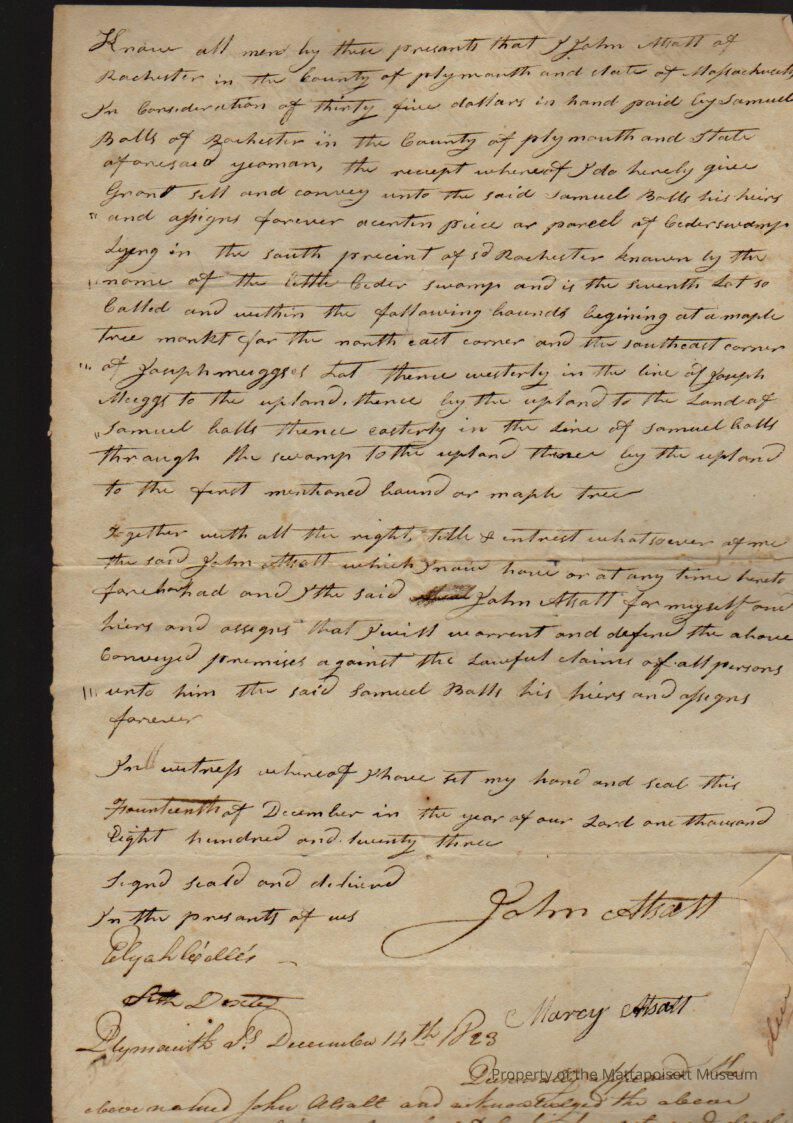 Know all men by these presants that I John Atsatt of
Rochester in the County of plymouth and state of Massachusetts
In Consideration of thirty five dollars in hand paid by Samuel
Balls of Rochester in the County of plymouth and State
aforesaid yeoman, the recept whereof I do hereby give
Grant sell and convey unto the said Samuel Balls his heirs
and assigns forever acertin piece or parcel of Cederswamp
Lying in the south precint of sd Rochester known by the
name of the little Ceder swamp and is the seventh Lot so
Called and within the following bounds begining at a maple
tree markt for the north east corner and the southeast corner
of Joseph meiggses Lot thence westerly in the line of Joseph
Meiggs to the upland, thence by the upland to the Land of
Samuel balls thence easterly in the Line of Samuel balls
through the swamp to the upland thence by the upland
to the first mentioned bound or maple tree
together with all the right, title & intrest whatsoever of me
the said John Atsatt which I now have or at any time hereto
fore had and I the said John Atsatt for myself and
hiers and assigns that I will warrent and defend the above
Conveyed premises against the Lawful claims of all persons
unto him the said Samuel Balls his hiers and assigns
forever
In witness whereof I have set my hand and seal this
Fourteenth of December in the year of our Lord one thousand
Eight hundred and twenty three
Signd seald and deliverd
In the presants of us
John Atsatt
Elijah
Seth Dexter
Marcy Atsatt
Plymouth Ss December 14th 1823
Property of the Mattapoisett Museum
above named John Atsatt and acknowledged the above